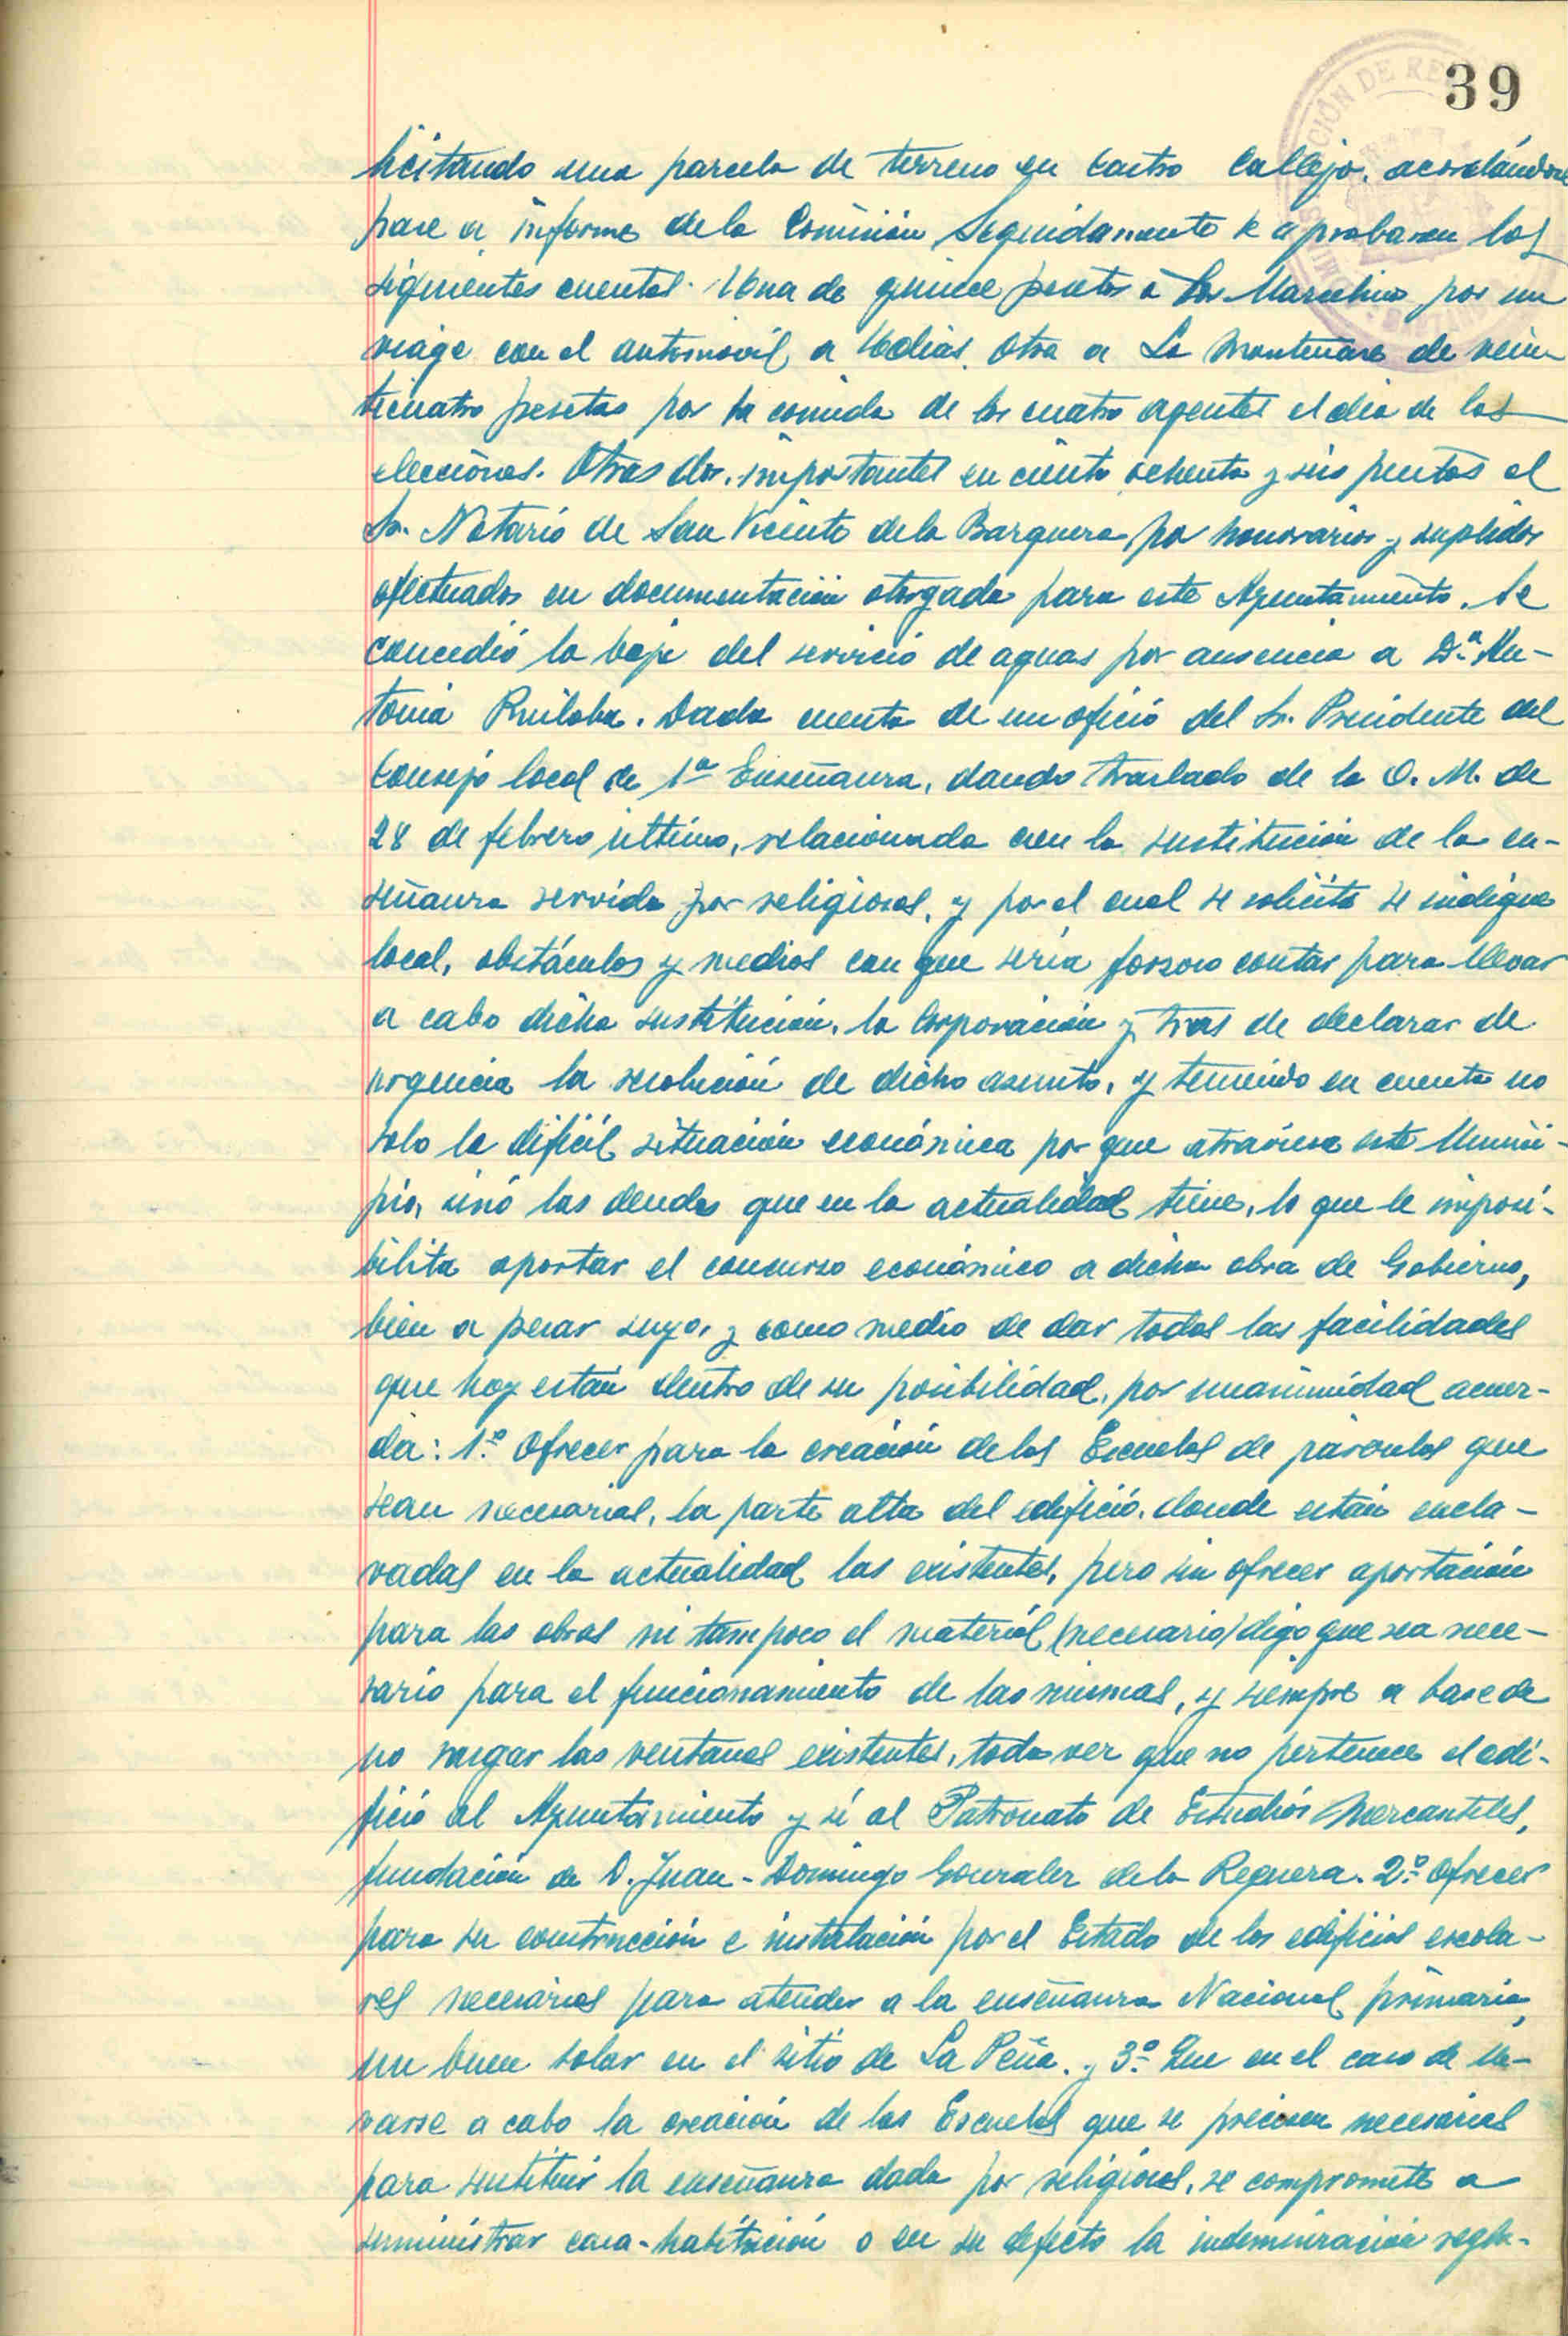 39
licitando una parcela de terreno en Castro Callejo, acordándose
pase a informe de la Comisión Seguidamente se aprobaron las
siguientes cuentas. Una de quince pesetas a Marcelino por un
viage con el automovil a Udias. Otra a La Montañesa de vein-
ticuatro pesetas por la comida de los cuatro agentes el dia de las
elecciones. Otras dos, importantes en ciento ochenta y seis pesetas al
Sr. Notario de San Vicente de la Barquera por honorarios y suplidos
efectuados en documentación otorgada para este Ayuntamiento. Se
concedió la baja del servicio de aguas por ausencia a D.ª An-
tonia Ruiloba. Dada cuenta de un oficio del Sr. Presidente del
Consejo local de 1ª Enseñanza, dando traslado de la O. M. de
28 de febrero último, relacionada con la sustitución de la en-
señanza servida por religiosos, y por el cual se solicita se indique
local, obstáculos y medios con que seria forzoso contar para llevar
a cabo dicha sustitución, la Corporación y tras de declarar de
urgencia la resolución de dicho asunto, y teniendo en cuenta no
solo la dificil situación económica por que atraviesa este Munici-
pio, sinó las deudas que en la actualidad tiene, lo que le imposi-
bilita aportar el concurso económico a dicha obra de Gobierno,
bien a pesar suyo, y como medio de dar todas las facilidades
que hoy están dentro de su posibilidad, por unanimidad acuer-
da: 1.º Ofrecer para la creación de las Escuelas de párvulos que
sean necesarias, la parte alta del edificio, donde están encla-
vadas en la actualidad las existentes, pero sin ofrecer aportación
para las obras ni tampoco el material (necesario) digo que sea nece-
sario para el funcionamiento de las mismas, y siempre a base de
no rasgar las ventanas existentes, toda vez que no pertenece el edi-
ficio al Ayuntamiento y sí al Patronato de Estudios Mercantiles,
fundación de D. Juan-Domingo Gonzalez de la Reguera. 2.º Ofrecer
para su construcción e instalación por el Estado de los edificios escola-
res necesarios para atender a la enseñanza Nacional primaria,
un buen solar en el sitio de La Peña. y 3.º Que en el caso de lle-
varse a cabo la creación de las Escuelas que se precisen necesarias
para sustituir la enseñanza dada por religiosos, se compromete a
suministrar casa-habitación o en su defecto la indemnización regla-